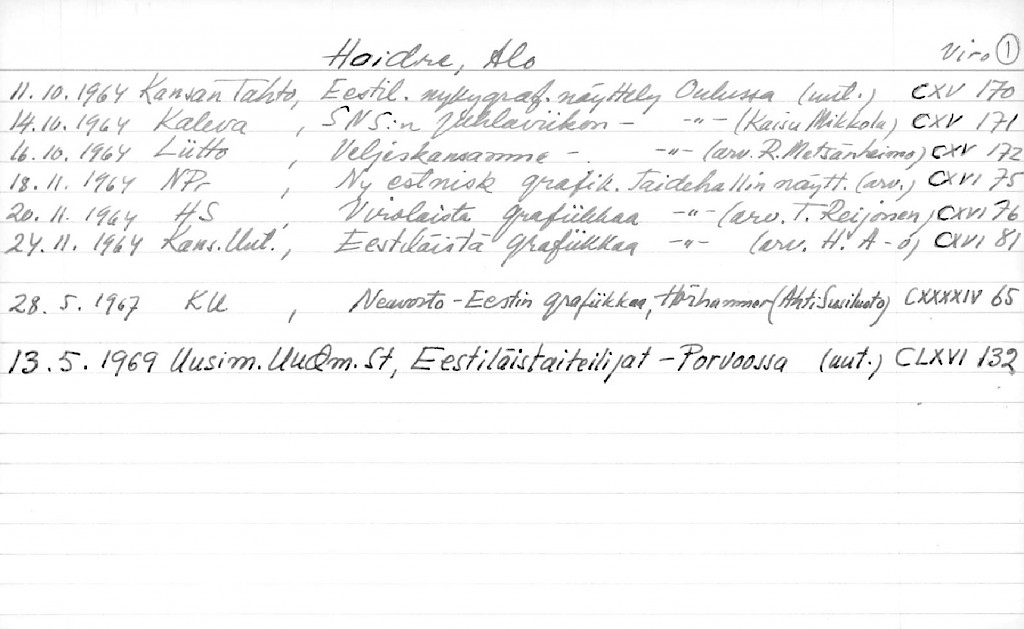 Hoidre, Alo Viro 1
11.10.1964 Kansan Tahto, Eestil. nykygraf. näyttely Oulussa (uut.) CXV 170
14.10.1964 Kaleva , SNS:n juhlaviikon - -"- (Kaisu Mikkola) CXV 171
16.10.1964 Liitto , Veljeskansamme - -"- (arv. R. Metsänheimo) CXV 172
18.11.1964 NPr , Ny estnisk grafik. Taidehallin näytt. (arv.) CXVI 75
20.11.1964 HS , Virolaista grafiikkaa -"- (arv. T. Reijonen) CXVI 76
24.11.1964 Kans.Uut., Eestiläistä grafiikkaa -"- (arv. H. A-o) CXVI 81
28.5.1967 KU , Neuvosto-Eestin grafiikkaa, Hörhammer (Ahti Susiluoto) CXXXXIV 65
13.5.1969 Uusim. Uudm. St, Eestiläistaiteilijat - Porvoossa (uut.) CLXVI 132